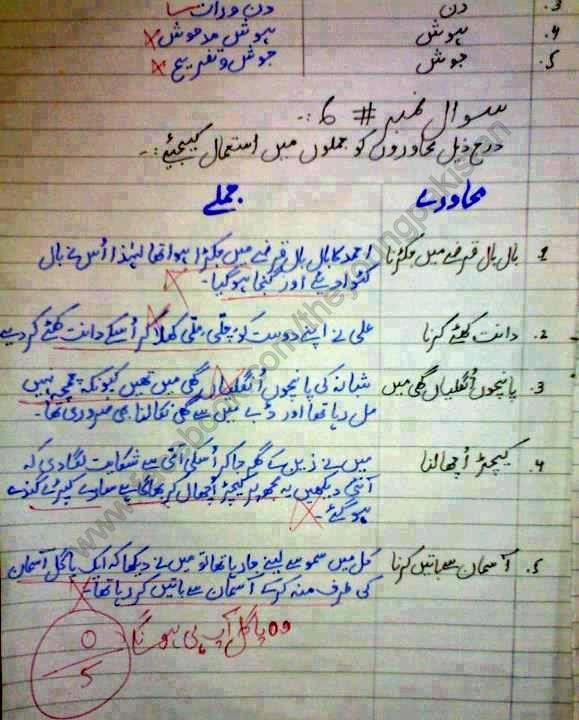 3. دن دن و رات
4. ہوش ہوش مدہوش
5. جوش جوش و تفریح
سوال نمبر # 6 :۔
درج ذیل محاوروں کو جملوں میں استعمال کیجیئے :۔
محاورے جملے
1 بال بال قرضے میں جکڑنا احمد کا بال بال قرضے میں جکڑا ہوا تھا لہٰذا اُس نے بال
کٹوا دیئے اور گنجا ہوگیا۔
2. دانت کھٹے کرنا علی نے اپنے دوست کو چٹنی کھلا کر اُسکے دانت کھٹے کر دیے
3. پانچوں اُنگلیاں گھی میں شبانہ کی پانچوں اُنگلیاں گھی میں تھیں کیونکہ چمچ نہیں
مل رہا تھا اور ڈبے میں سے گھی نکالنا بھی ضروری تھا۔
4. کیچڑ اُچھالنا میں نے زین کے گھر جا کر اُسکی امّی سے شکایت لگا دی کہ
آنٹی دیکھیں یہ مجھ پر کیچڑ اُچھال کر بھاگا ہے سارے کپڑے گندے
ہو گئے۔
5. آسمان سے باتیں کرنا کل میں سموسے لینے جا رہا تھا تو میں نے دیکھا کہ ایک پاگل آسمان
کی طرف منہ کرکے آسمان سے باتیں کر رہا تھا۔
وہ پاگل آپ ہی ہونگے
0
5